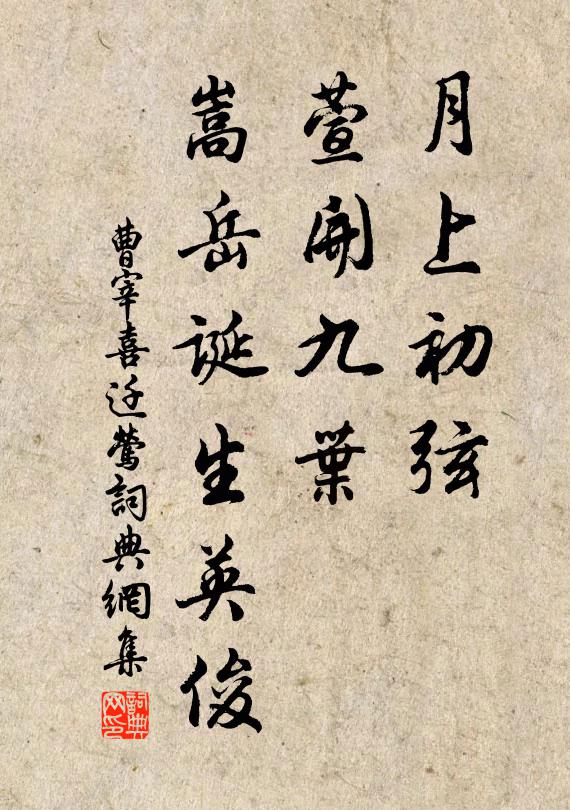 月上初弦
萱開九葉
嵩岳誕生英俊
曹宰喜迁鶯詞典網集
詞典网印